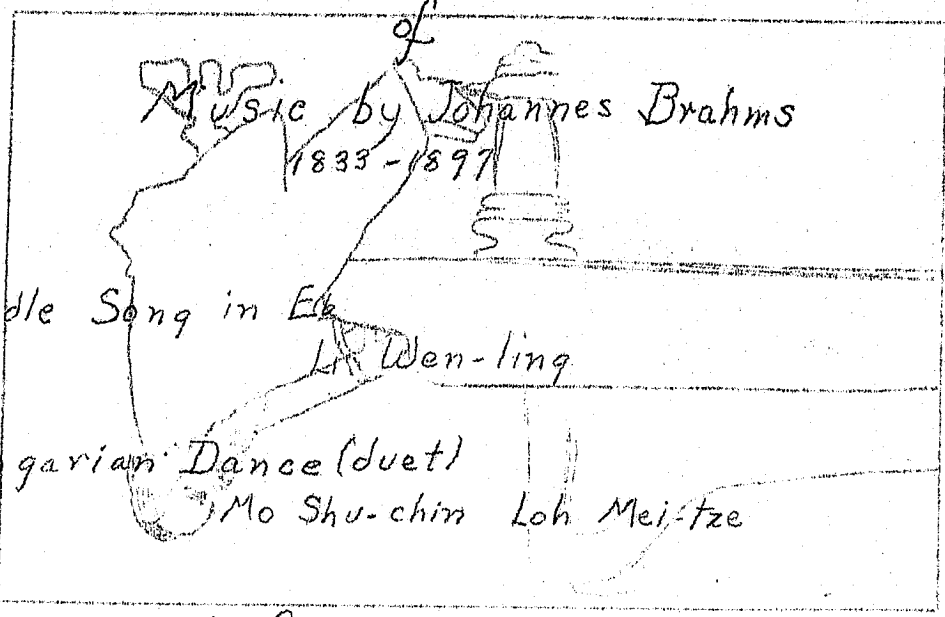 of
Music by Johannes Brahms
1833-1897
dle Song in Eb
Li Wen-ling
garian Dance (duet)
Mo Shu-chin Loh Mei-tze